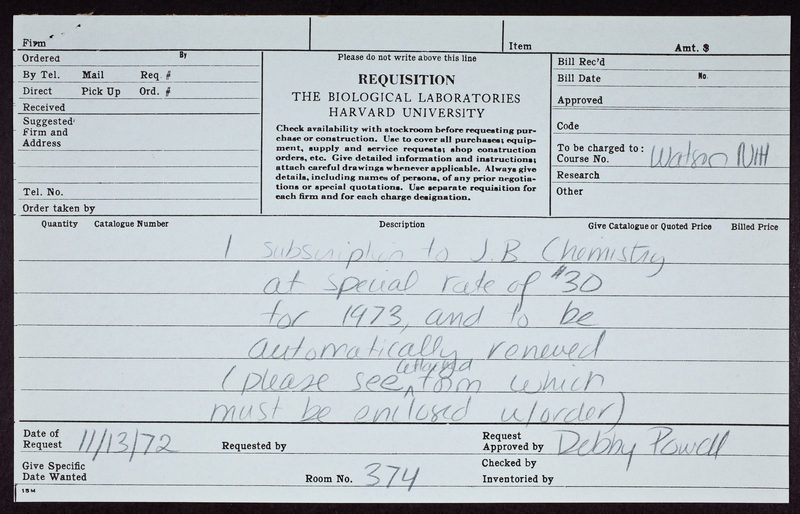 Firm
Item
Amt. $
Ordered
By
Please do not write above this line
Bill Rec'd
By Tel. Mail Req. #
REQUISITION
Bill Date No.
Direct Pick Up Ord. #
THE BIOLOGICAL LABORATORIES
Approved
Received
HARVARD UNIVERSITY
Suggested
Firm and
Address
Check availability with stockroom before requesting pur-
chase or construction. Use to cover all purchases; equip-
ment, supply and service requests; shop construction
orders, etc. Give detailed information and instructions;
attach careful drawings whenever applicable. Always give
details, including names of persons, of any prior negotia-
tions or special quotations. Use separate requisition for
each firm and for each charge designation.
Code
To be charged to:
Course No. Watson NIH
Research
Other
Tel. No.
Order taken by
Quantity Catalogue Number Description Give Catalogue or Quoted Price Billed Price
1 subscription to J.B. Chemistry
at special rate of $30
for 1973, and to be
automatically renewed
attached
(please see ^ form which
must be enclosed w/order)
Date of
Request 11/13/72
Requested by
Request
Approved by Debby Powell
Give Specific
Date Wanted
Room No. 374
Checked by
Inventoried by
15M